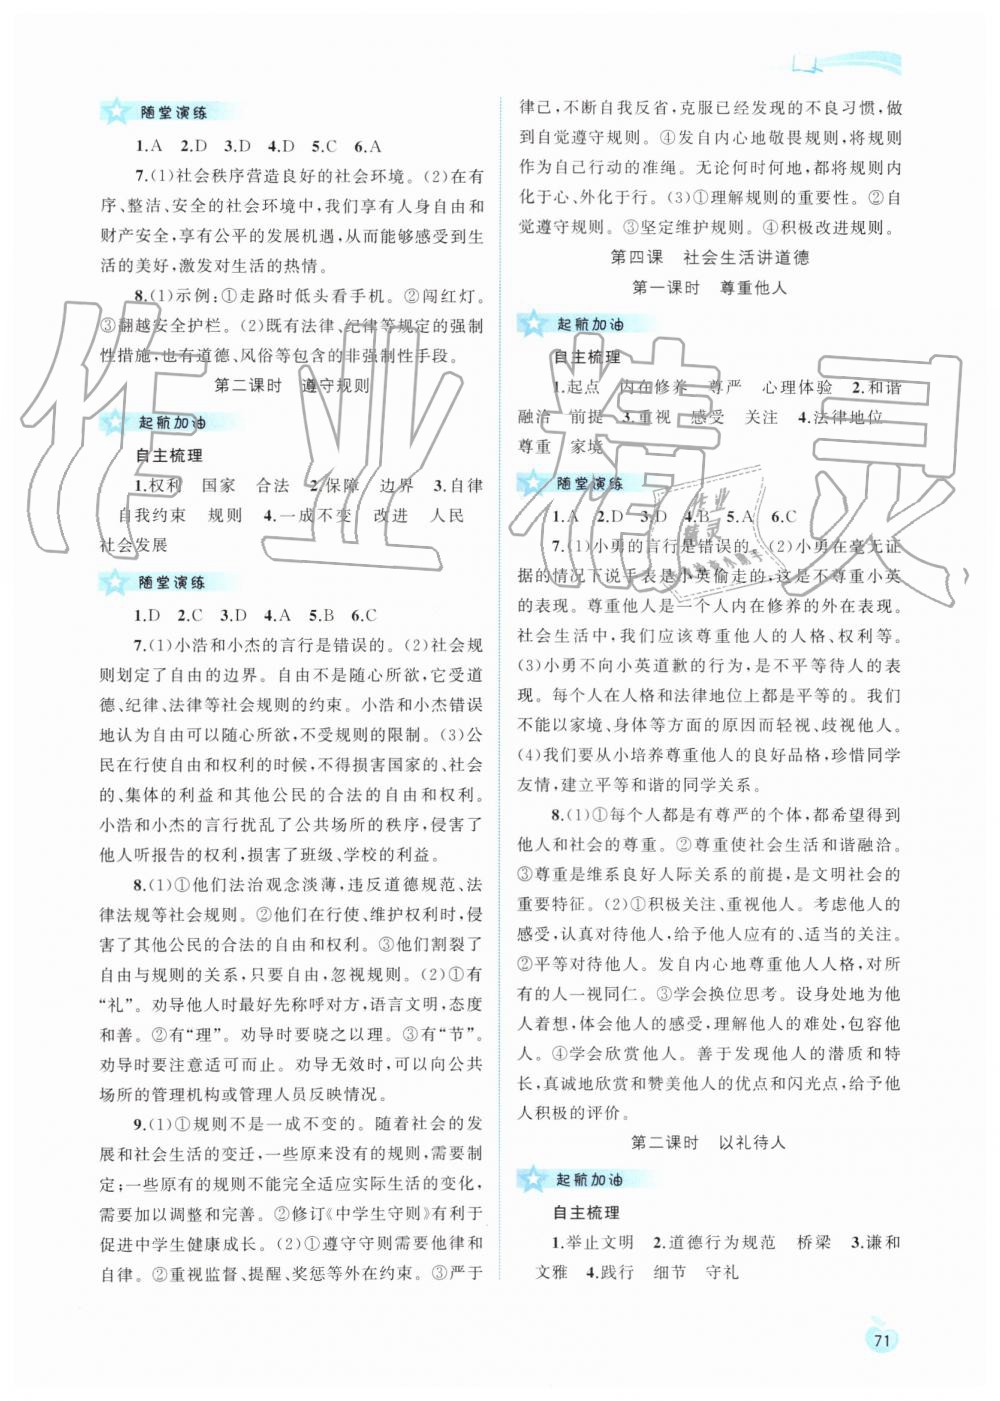 随堂演练
1.A 2.D 3.D 4.D 5.C 6.A
7.(1)社会秩序营造良好的社会环境。(2)在有
序、整洁、安全的社会环境中,我们享有人身自由和
财产安全,享有公平的发展机遇,从而能够感受到生
活的美好,激发对生活的热情。
8.(1)示例:①走路时低头看手机。②闯红灯。
③翻越安全护栏。(2)既有法律、纪律等规定的强制
性措施,也有道德、风俗等包含的非强制性手段。
第二课时 遵守规则
起航加油
自主梳理
1.权利 国家 合法 2.保障 边界 3.自律
自我约束 规则 4.一成不变 改进 人民
社会发展
随堂演练
1.D 2.C 3.D 4.A 5.B 6.C
7.(1)小浩和小杰的言行是错误的。(2)社会规
则划定了自由的边界。自由不是随心所欲,它受道
德、纪律、法律等社会规则的约束。小浩和小杰错误
地认为自由可以随心所欲,不受规则的限制。(3)公
民在行使自由和权利的时候,不得损害国家的、社会
的、集体的利益和其他公民的合法的自由和权利。
小浩和小杰的言行扰乱了公共场所的秩序,侵害了
他人听报告的权利,损害了班级、学校的利益。
8.(1)①他们法治观念淡薄,违反道德规范、法
律法规等社会规则。②他们在行使、维护权利时,侵
害了其他公民的合法的自由和权利。③他们割裂了
自由与规则的关系,只要自由,忽视规则。(2)①有
“礼”。劝导他人时最好先称呼对方,语言文明,态度
和善。②有“理”。劝导时要晓之以理。③有“节”。
劝导时要注意适可而止。劝导无效时,可以向公共
场所的管理机构或管理人员反映情况。
9.(1)①规则不是一成不变的。随着社会的发
展和社会生活的变迁,一些原来没有的规则需要制
定;一些原有的规则不能完全适应实际生活的变化,
需要加以调整和完善。②修订《中学生守则》有利于
促进中学生健康成长。(2)①遵守守则需要他律和
自律。②重视监督、提醒、奖惩等外在约束。③严于
律己,不断自我反省,克服已经发现的不良习惯,做
到自觉遵守规则。④发自内心地敬畏规则,将规则
作为自己行动的准绳。无论何时何地,都将规则内
化于心、外化于行。(3)①理解规则的重要性。②自
觉遵守规则。③坚定维护规则。④积极改进规则。
第四课 社会生活讲道德
第一课时 尊重他人
起航加油
自主梳理
1.起点 内在修养 尊严 心理体验 2.和谐
融洽 前提 3.重视 感受 关注 4.法律地位
尊重 家境
随堂演练
1.A 2.D 3.D 4.B 5.A 6.C
7.(1)小勇的言行是错误的。(2)小勇在毫无证
据的情况下说手表是小英偷走的,这是不尊重小英
的表现。尊重他人是一个人内在修养的外在表现。
社会生活中,我们应该尊重他人的人格、权利等。
(3)小勇不向小英道歉的行为,是不平等待人的表
现。每个人在人格和法律地位上都是平等的。我们
不能以家境、身体等方面的原因而轻视、歧视他人。
(4)我们要从小培养尊重他人的良好品格,珍惜同学
友情,建立平等和谐的同学关系。
8.(1)①每个人都是有尊严的个体,都希望得到
他人和社会的尊重。②尊重使社会生活和谐融洽。
③尊重是维系良好人际关系的前提,是文明社会的
重要特征。(2)①积极关注、重视他人。考虑他人的
感受,认真对待他人,给予他人应有的、适当的关注。
②平等对待他人。发自内心地尊重他人人格,对所
有的人一视同仁。③学会换位思考。设身处地为他
人着想,体会他人的感受,理解他人的难处,包容他
人。④学会欣赏他人。善于发现他人的潜质和特
长,真诚地欣赏和赞美他人的优点和闪光点,给予他
人积极的评价。
第二课时 以礼待人
起航加油
自主梳理
1.举止文明 2.道德行为规范 桥梁 3.谦和
文雅 4.践行 细节 守礼
71
作业精灵
作业
精灵